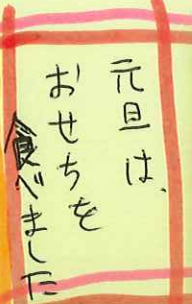 元旦は、
おせちを
食べました